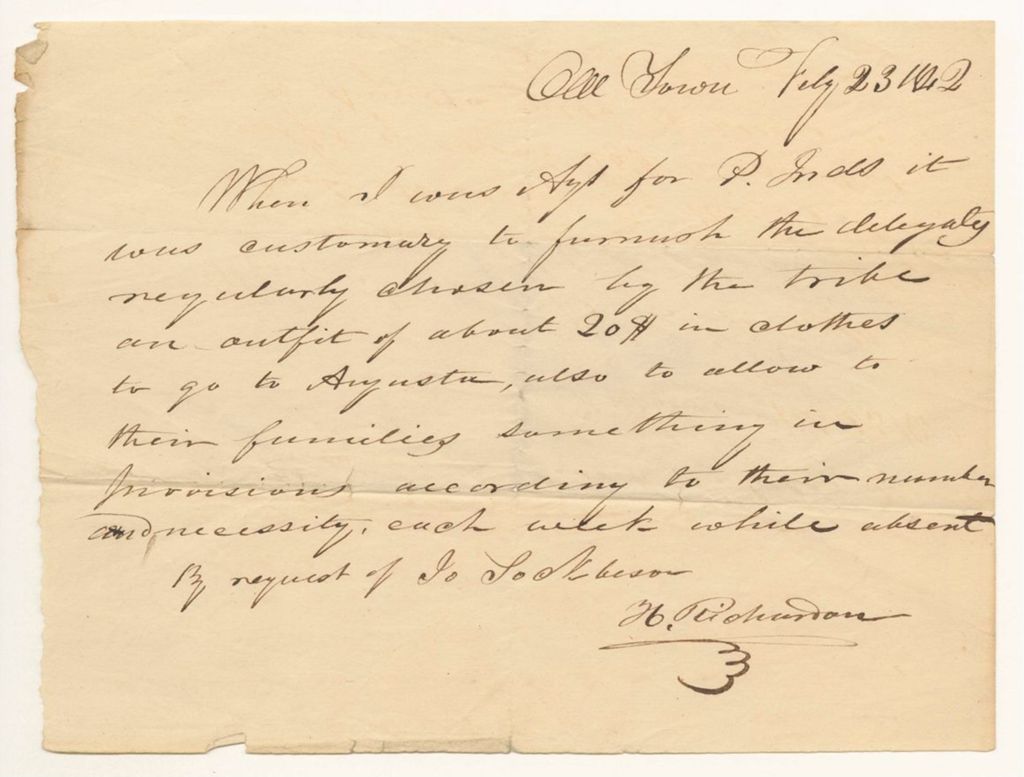 Old Town Feby 23 1842
When I was Agt for P. Inds it
was customary to furnish the delegates
regularly chosen by the tribe
an outfit of about 20$ in clothes
to go to Augusta, also to allow to
their families something in
provisions according to their number
and necessity, each week while absent
By request of Jo Sockbeson
H. Richardson